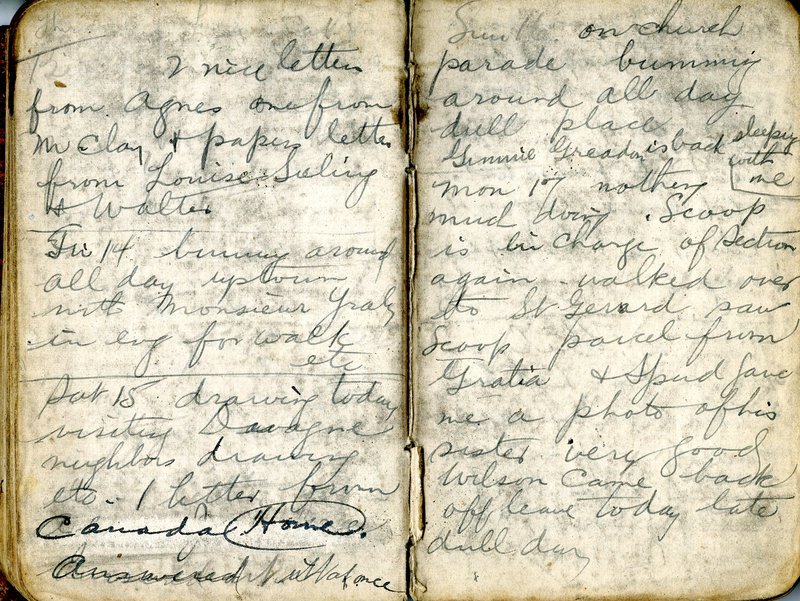 2 nice letters
from Agnes one from
McClay & papers letter
from Louise
& Walter
Fri 14 buming around
all day uptown
with Monsieur
in evg for walk
etc
Sat 15 drawing today
visiting
neighbors drawing
etc. 1 letter from
Canada Home.
Answered it at once
Sun 16 on church
parade bumming
around all day
dull place
Gimmie is back sleeping with me
Mon 17 nothing
much doing. Scoop
is in charge of Section
again. walked over
to St Gerard saw
Scoop parcel from
Gratia & Spud gave
me a photo of his
sister very good
Wilson came back
off leave today late
dull day